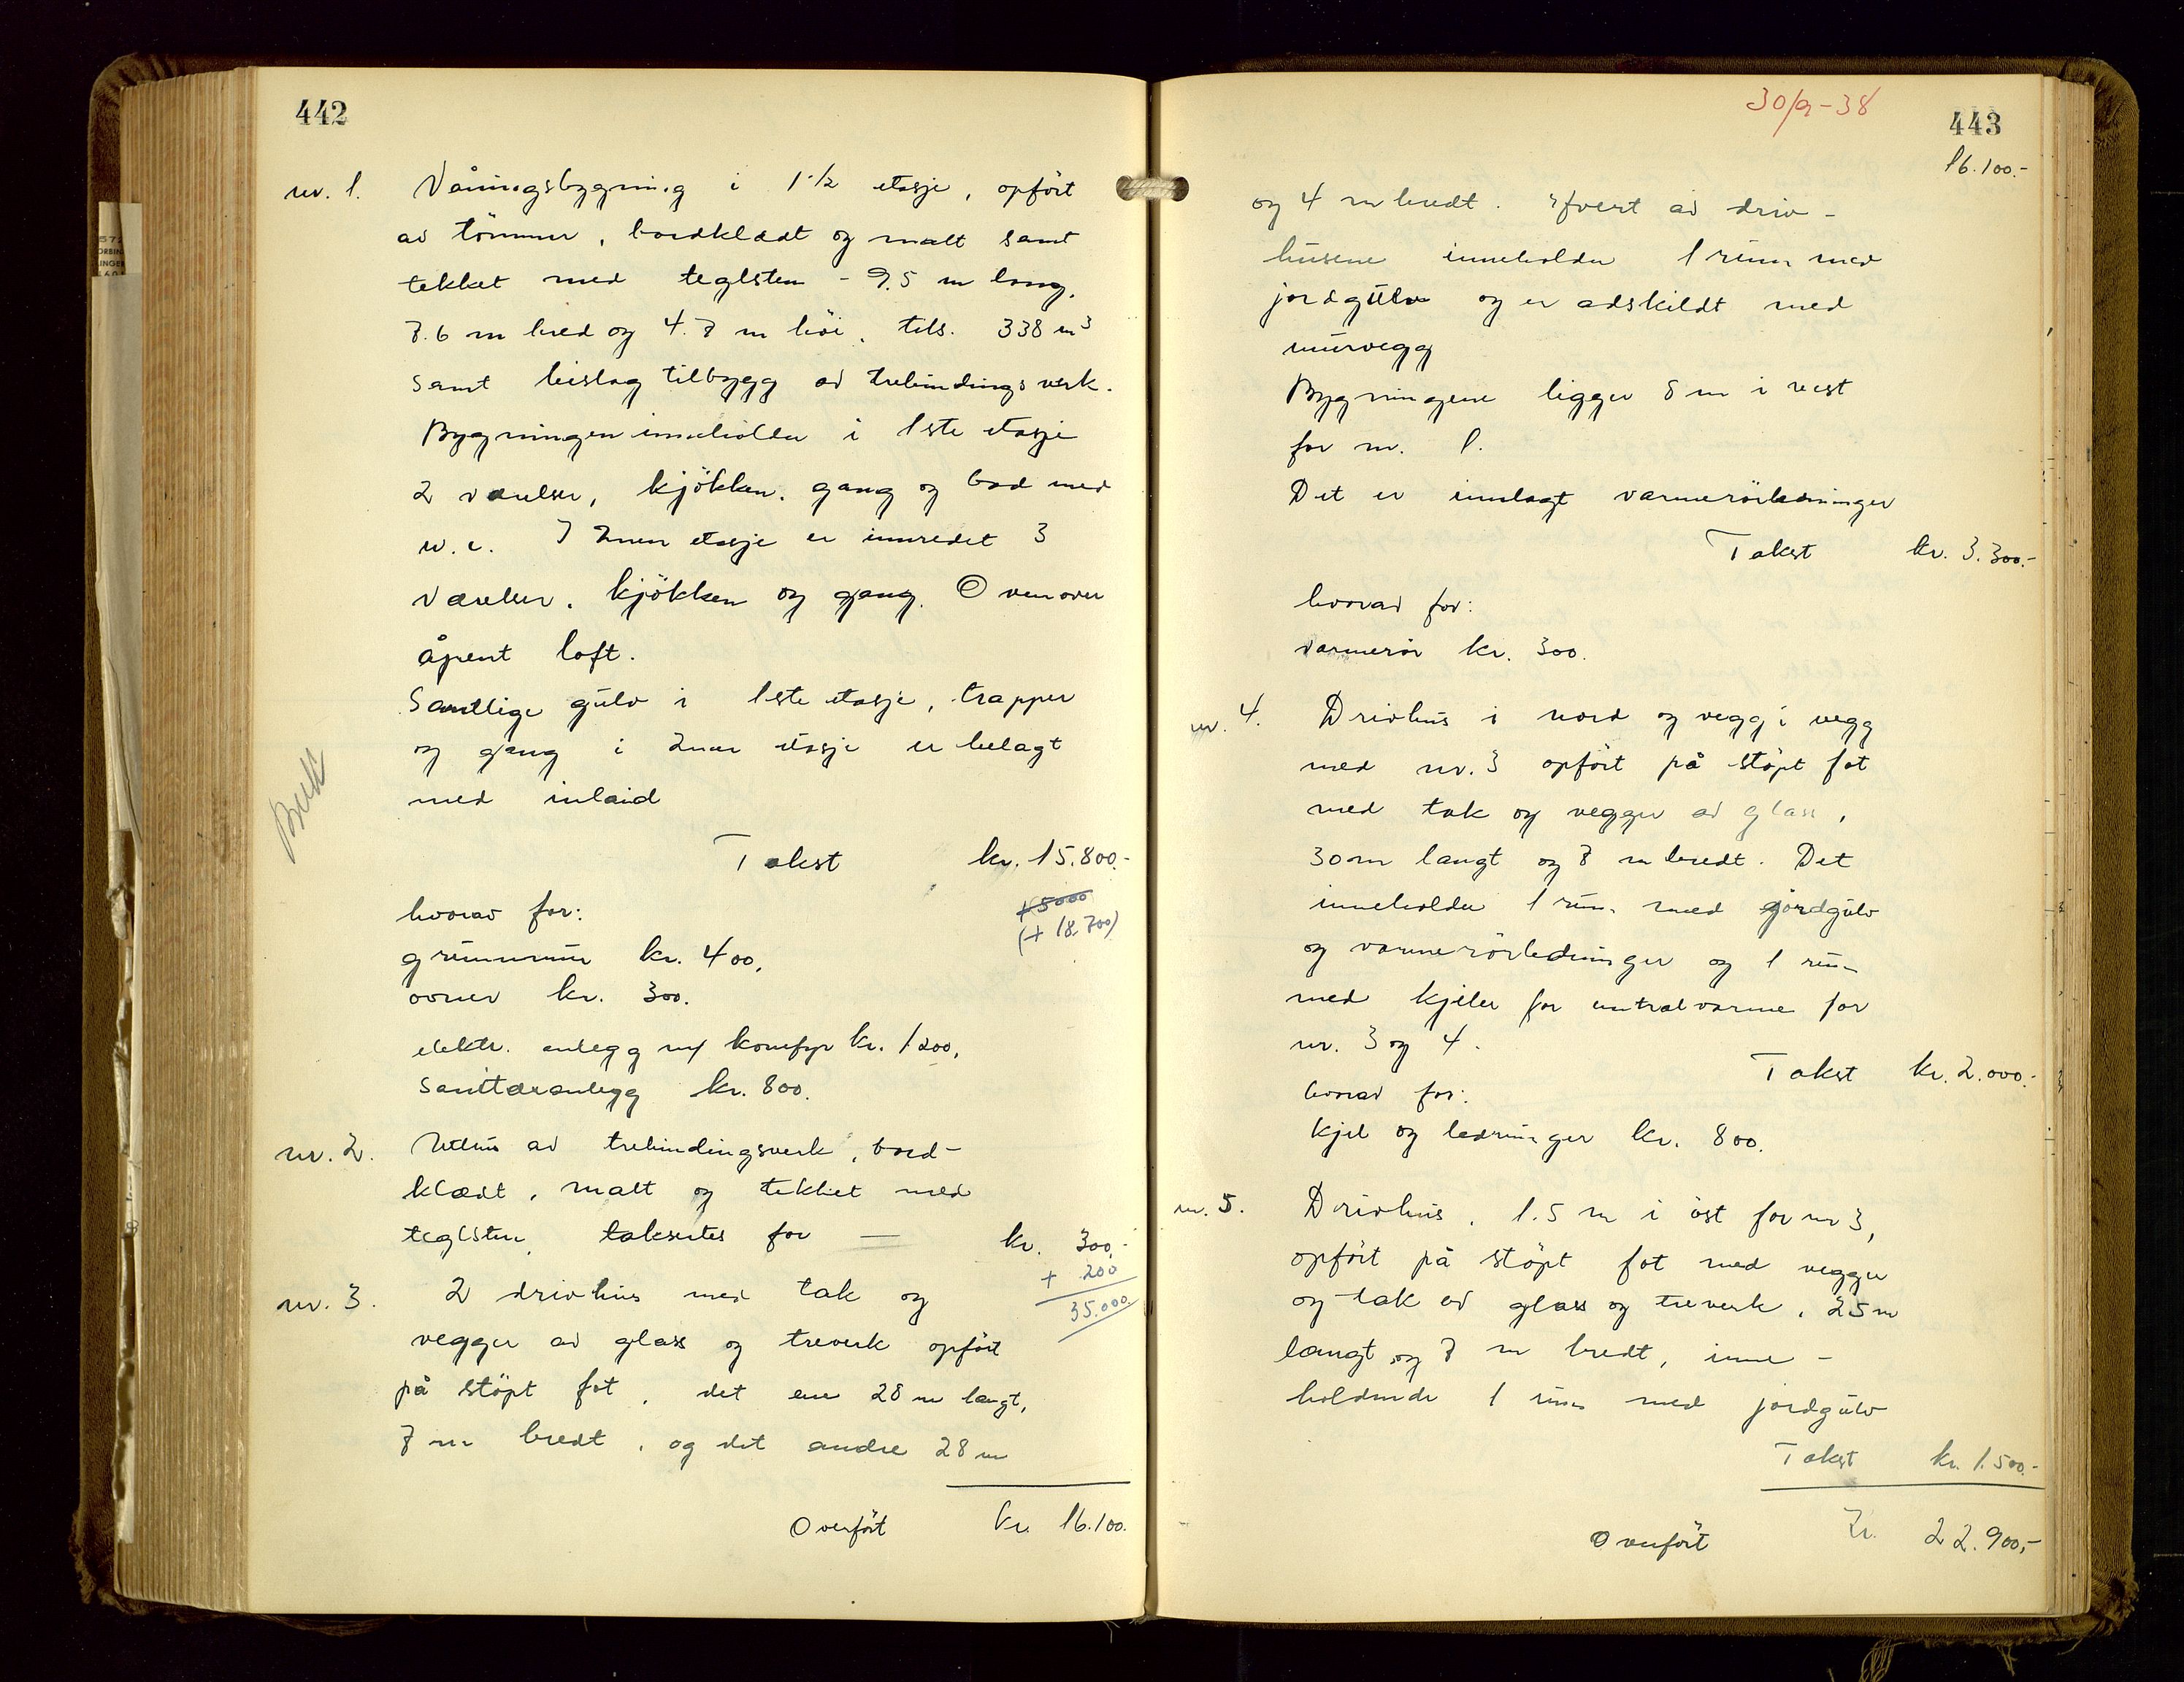 442
nr. 1. Våningsbygning i 1 1/2 etasje, opført
av tömmer, bordklædt og malt samt
tekket med teglsten - 9,5 m lang,
7.6 m bred og 4.7 m höi, tils. 338 m³
samt bislag tilbygg av trebindingsverk.
Bygningen inneholder i 1ste etasje
2 værelser, kjökken, gang og bad med
w.c. I 2nen etasje er innredet 3
værelser, kjökken og gang. Ovenover
åpent loft.
Samtlige gulv i 1ste etasje, trapper
og gang i 2nen etasje er belagt
med inlaid
Takst kr. 15.800.-
+5000
(+ 18.700)
hvorav for:
grunnmur kr. 400,
ovner kr. 300.
elektr. anlegg m/ komfyr kr. 1200,
Sanitæranlegg kr. 800.
nr. 2. Uthus av trebindingsverk, bord-
klædt, malt og tekket med
teglsten, taksertes for — kr. 300,-
+ 200
35.000
nr. 3. 2 drivhus med tak og
vegger av glass og treverk opført
på stöpt fot, det ene 28 m langt,
7 m bredt, og det andre 28 m
Overfört kr. 16.100.
30/9-38
443
16.100.-
og 4 m bredt. Hvert av driv-
husene inneholder 1 rum med
jordgulv og er adskildt med
murvegg
Bygningene ligger 8 m i vest
for nr. 1.
Det er innlagt varmerörledninger
Takst kr. 3.300.-
hvorav for:
varmerör kr. 300.
nr. 4. Drivhus i nord og vegg i vegg
med nr. 3 opfört på stöpt fot
med tak og vegger av glass,
30 m langt og 7 m bredt. Det
inneholder 1 rum med jordgulv
og varmerörledninger og 1 rum
med kjeler for sentralvarme for
nr. 3 og 4.
Takst kr. 2.000.-
hvorav for:
kjel og ledninger kr. 800.
nr. 5. Drivhus, 1.5 m i öst for nr 3,
opfört på stöpt fot med vegger
og tak av glass og treverk, 25 m
langt og 7 m bredt, inne-
holdende 1 rum med jordgulv
Takst kr. 1.500.-
Overfört Kr. 22.900,-